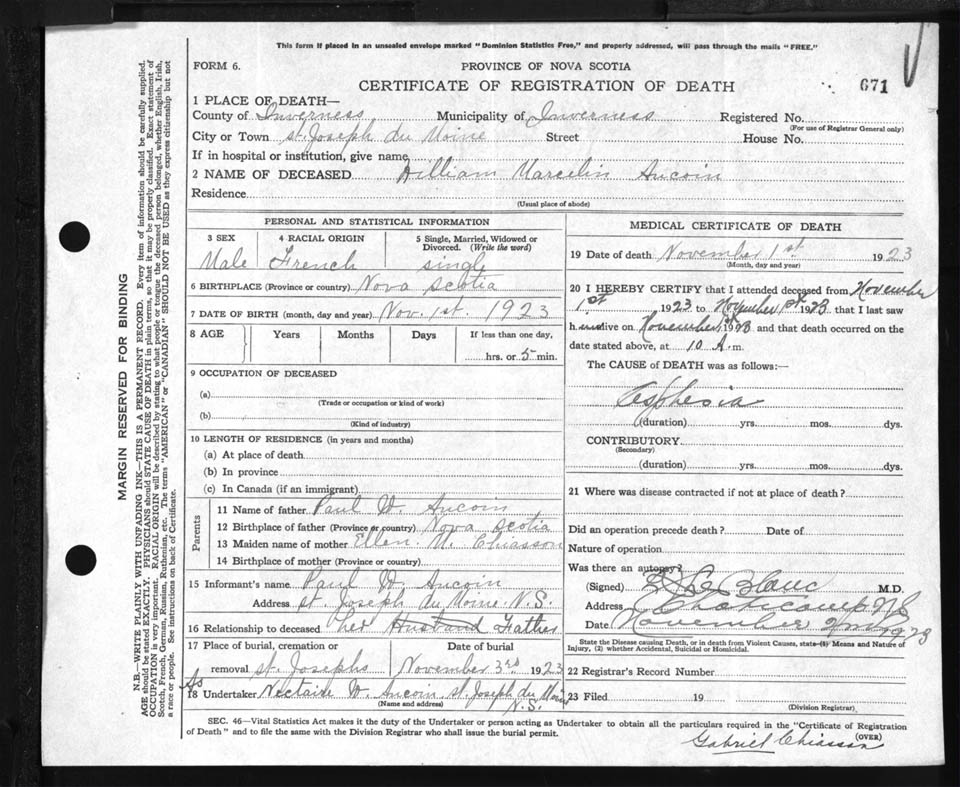 This form if placed in an unsealed envelope marked "Dominion Statistics Free," and properly addressed, will pass through the mails "FREE."
FORM 6.
PROVINCE OF NOVA SCOTIA
CERTIFICATE OF REGISTRATION OF DEATH
671
1 PLACE OF DEATH—
County of Inverness Municipality of Inverness Registered No.
(For use of Registrar General only)
City or Town St. Joseph du Moine Street House No.
If in hospital or institution, give name
2 NAME OF DECEASED William Marcelin Aucoin
Residence
(Usual place of abode)
PERSONAL AND STATISTICAL INFORMATION
3 SEX 4 RACIAL ORIGIN 5 Single, Married, Widowed or Divorced. (Write the word)
Male French single
6 BIRTHPLACE (Province or country) Nova Scotia
7 DATE OF BIRTH (month, day and year) Nov. 1st. 1923
8 AGE Years Months Days If less than one day,
hrs. or 5 min.
9 OCCUPATION OF DECEASED
(a)
(Trade or occupation or kind of work)
(b)
(Kind of industry)
10 LENGTH OF RESIDENCE (in years and months)
(a) At place of death
(b) In province
(c) In Canada (if an immigrant)
Parents
11 Name of father Paul W. Aucoin
12 Birthplace of father (Province or country) Nova Scotia
13 Maiden name of mother Ellen. M. Chiasson
14 Birthplace of mother (Province or country)
15 Informant's name Paul W. Aucoin
Address St. Joseph du Moine N.S.
16 Relationship to deceased her Husband Father
17 Place of burial, cremation or removal Date of burial
St. Josephs November 3rd 1923
18 Undertaker Nectaire W. Aucoin St. Joseph du Moine
(Name and address) N.S.
MEDICAL CERTIFICATE OF DEATH
19 Date of death November 1st 1923
(Month, day and year)
20 I HEREBY CERTIFY that I attended deceased from November
1st 1923 to November 1st 1923 that I last saw
h alive on November 1923 and that death occurred on
date stated above, at 10 A.m.
The CAUSE of DEATH was as follows:
Asphexia
(duration) yrs. mos. dys.
CONTRIBUTORY
(Secondary)
(duration) yrs. mos. dys.
21 Where was disease contracted if not at place of death?
Did an operation precede death? Date of
Nature of operation
Was there an autopsy?
(Signed) Le Blanc M.D.
Address Cheticamp N.S.
Date November 2nd 1923
State the Disease causing Death, or in death from Violent Causes, state (1) Means and Nature of Injury, (2) whether Accidental, Suicidal or Homicidal.
22 Registrar's Record Number
23 Filed 19
(Division Registrar)
SEC. 46—Vital Statistics Act makes it the duty of the Undertaker or person acting as Undertaker to obtain all the particulars required in the "Certificate of Registration
of Death" and to file the same with the Division Registrar who shall issue the burial permit.
(OVER)
Gabriel Chiasson
MARGIN RESERVED FOR BINDING
N.B.—WRITE PLAINLY WITH UNFADING INK—THIS IS A PERMANENT RECORD. Every item of information should be carefully supplied.
AGE should be stated EXACTLY. PHYSICIANS should STATE CAUSE OF DEATH in plain terms, so that it may be properly classified. Exact statement of
OCCUPATION is very important. RACIAL ORIGIN will be described by stating to what people or tongue the deceased person belonged, whether English, Irish,
Scotch, French, German, Russian, Ruthenian, etc. The terms "AMERICAN" or "CANADIAN" SHOULD NOT BE USED as they express citizenship but not
a race or people. See instructions on back of Certificate.